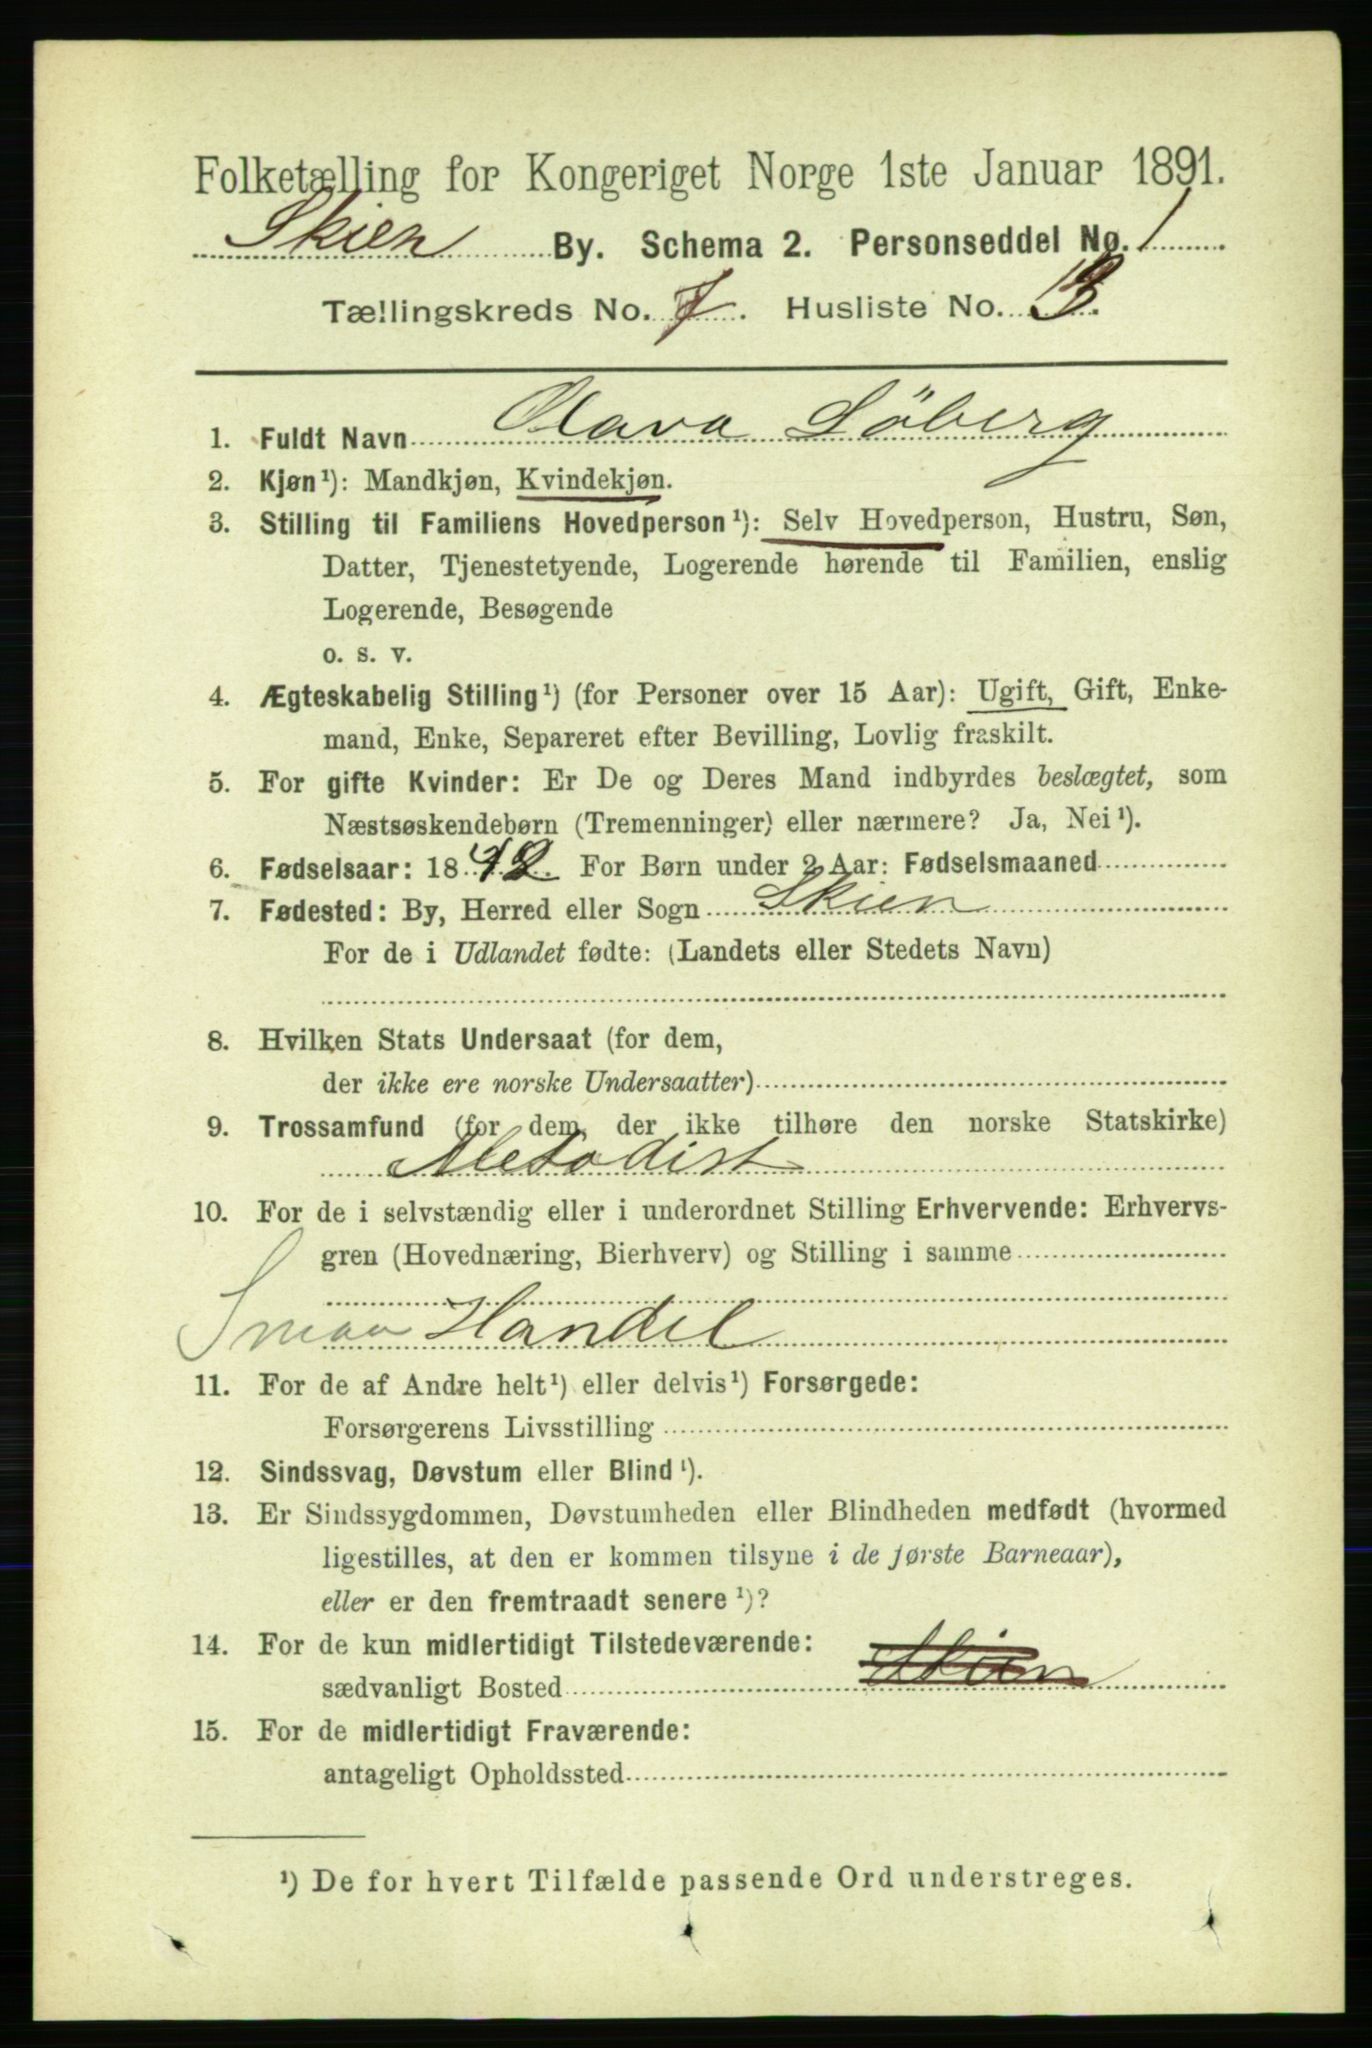 Folketælling for Kongeriget Norge 1ste Januar 1891.
Skien By. Schema 2. Personseddel No. 1
Tællingskreds No. 7. Husliste No. 13.
1. Fuldt Navn Olava Söberg
2. Kjøn¹): Mandkjøn, Kvindekjøn.
3. Stilling til Familiens Hovedperson¹): Selv Hovedperson, Hustru, Søn,
Datter, Tjenestetyende, Logerende hørende til Familien, enslig
Logerende, Besøgende
o. s. v.
4. Ægteskabelig Stilling¹) (for Personer over 15 Aar): Ugift, Gift, Enke-
mand, Enke, Separeret efter Bevilling, Lovlig fraskilt.
5. For gifte Kvinder: Er De og Deres Mand indbyrdes beslægtet, som
Næstsøskendebørn (Tremenninger) eller nærmere? Ja, Nei¹).
6. Fødselsaar: 1842. For Børn under 2 Aar: Fødselsmaaned
7. Fødested: By, Herred eller Sogn Skien
For de i Udlandet fødte: (Landets eller Stedets Navn)
8. Hvilken Stats Undersaat (for dem,
der ikke ere norske Undersaatter)
9. Trossamfund (for dem, der ikke tilhøre den norske Statskirke)
Metodist
10. For de i selvstændig eller i underordnet Stilling Erhvervende: Erhvervs-
gren (Hovednæring, Bierhverv) og Stilling i samme
Smaa Handel
11. For de af Andre helt¹) eller delvis¹) Forsørgede:
Forsørgerens Livsstilling
12. Sindssvag, Døvstum eller Blind¹).
13. Er Sindssygdommen, Døvstumheden eller Blindheden medfødt (hvormed
ligestilles, at den er kommen tilsyne i de første Barneaar),
eller er den fremtraadt senere¹)?
14. For de kun midlertidigt Tilstedeværende:
sædvanligt Bosted Skien
15. For de midlertidigt Fraværende:
antageligt Opholdssted
¹) De for hvert Tilfælde passende Ord understreges.